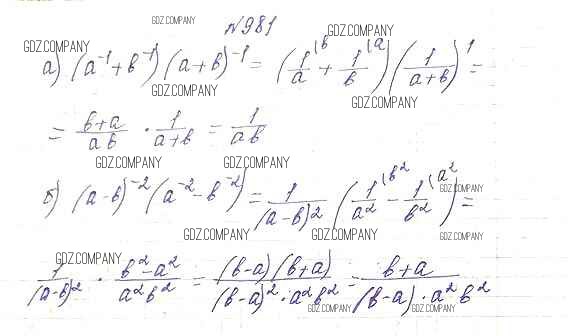 GDZ.COMPANY
№981
GDZ.COMPANY
GDZ.COMPANY
а) (a⁻¹+b⁻¹)(a+b)⁻¹ = (1/a^(b + 1/b^(a)(1/(a+b))¹ =
GDZ.COMPANY
GDZ.COMPANY
= (b+a)/(ab) · 1/(a+b) = 1/(ab)
GDZ.COMPANY
GDZ.COMPANY
GDZ.COMPANY
б) (a-b)⁻²(a⁻²-b⁻²) = 1/(a-b)² (1/a²^(b² - 1/b²^(a²) =
GDZ.COMPANY
GDZ.COMPANY
GDZ.COMPANY
GDZ.COMPANY
1/(a-b)² · (b²-a²)/(a²b²) = ((b-a)(b+a))/((b-a)²·a²b²) = (b+a)/((b-a)·a²b²)
GDZ.COMPANY
GDZ.COMPANY